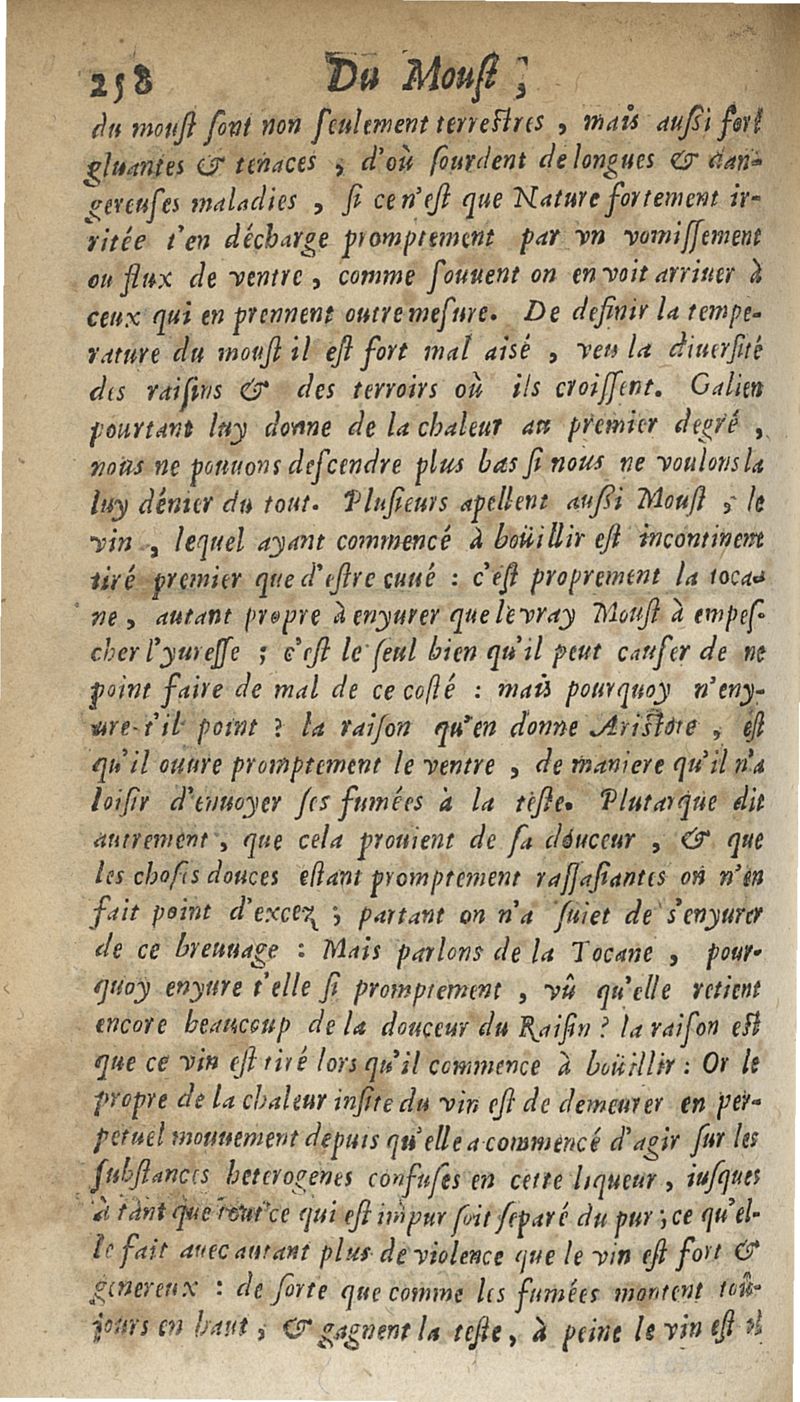 258 Du Moust ;
du moust sont non seulement terrestres , mais aussi fort
gluantes & tenaces , d'où sourdent de longues & dan-
gereuses maladies , si ce n'est que Nature fortement ir-
ritée t'en décharge promptement par vn vomissement
ou flux de ventre , comme souuent on en voit arriuer à
ceux qui en prennent outre mesure. De definir la tempe-
rature du moust il est fort mal aisé , veu la diuersité
des raisins & des terroirs où ils croissent. Galien
pourtant luy donne de la chaleur au premier degré ,
nous ne pouuons descendre plus bas si nous ne voulons la
luy dénier du tout. Plusieurs apellent aussi Moust , le
vin , lequel ayant commencé à boüillir est incontinent
tiré premier que d'estre cuué : c'est proprement la toca-
ne , autant propre à enyurer que le vray Moust à empes-
cher l'yuresse ; c'est le seul bien qu'il peut causer de ne
point faire de mal de ce costé : mais pourquoy n'eny-
ure-t'il point ? la raison qu'en donne Aristote , est
qu'il ouure promptement le ventre , de maniere qu'il n'a
loisir d'enuoyer ses fumées à la teste. Plutarque dit
autrement , que cela prouient de sa douceur , & que
les choses douces estant promptement rassasiantes on n'en
fait point d'excez ; partant on n'a suiet de s'enyurer
de ce breuuage : Mais parlons de la Tocane , pour-
quoy enyure t'elle si promptement , vû qu'elle retient
encore beaucoup de la douceur du Raisin ? la raison est
que ce vin est tiré lors qu'il commence à boüillir : Or le
propre de la chaleur insite du vin est de demeurer en per-
petuel mouuement depuis qu'elle a commencé d'agir sur les
substances heterogenes confuses en cette liqueur , iusques
à tant que tout ce qui est impur soit separé du pur ; ce qu'el-
le fait auec autant plus de violence que le vin est fort &
genereux : de sorte que comme les fumées montent toû-
jours en haut , & gagnent la teste , à peine le vin est il